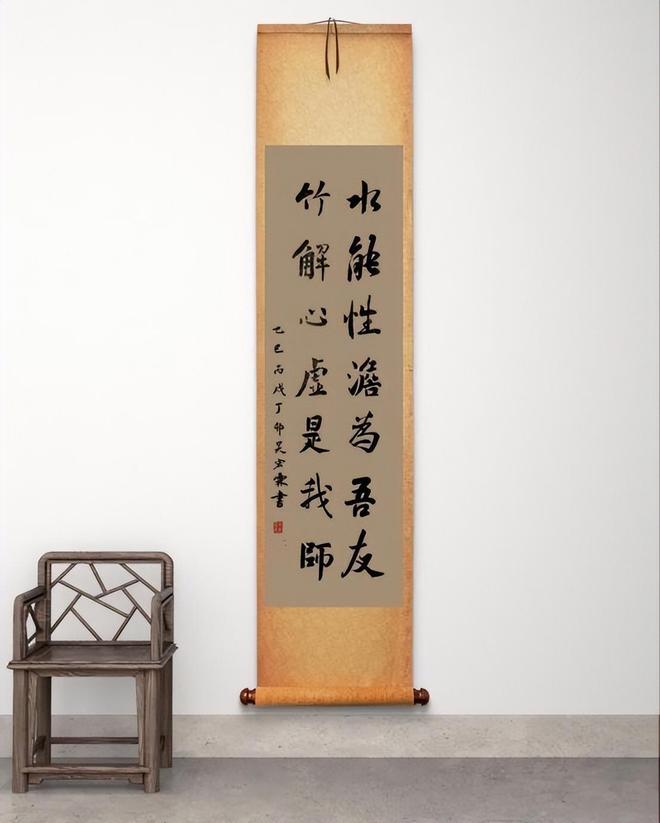 水能性澹為吾友
竹解心虛是我師
乙巳丙戌丁卯吴宏霖書